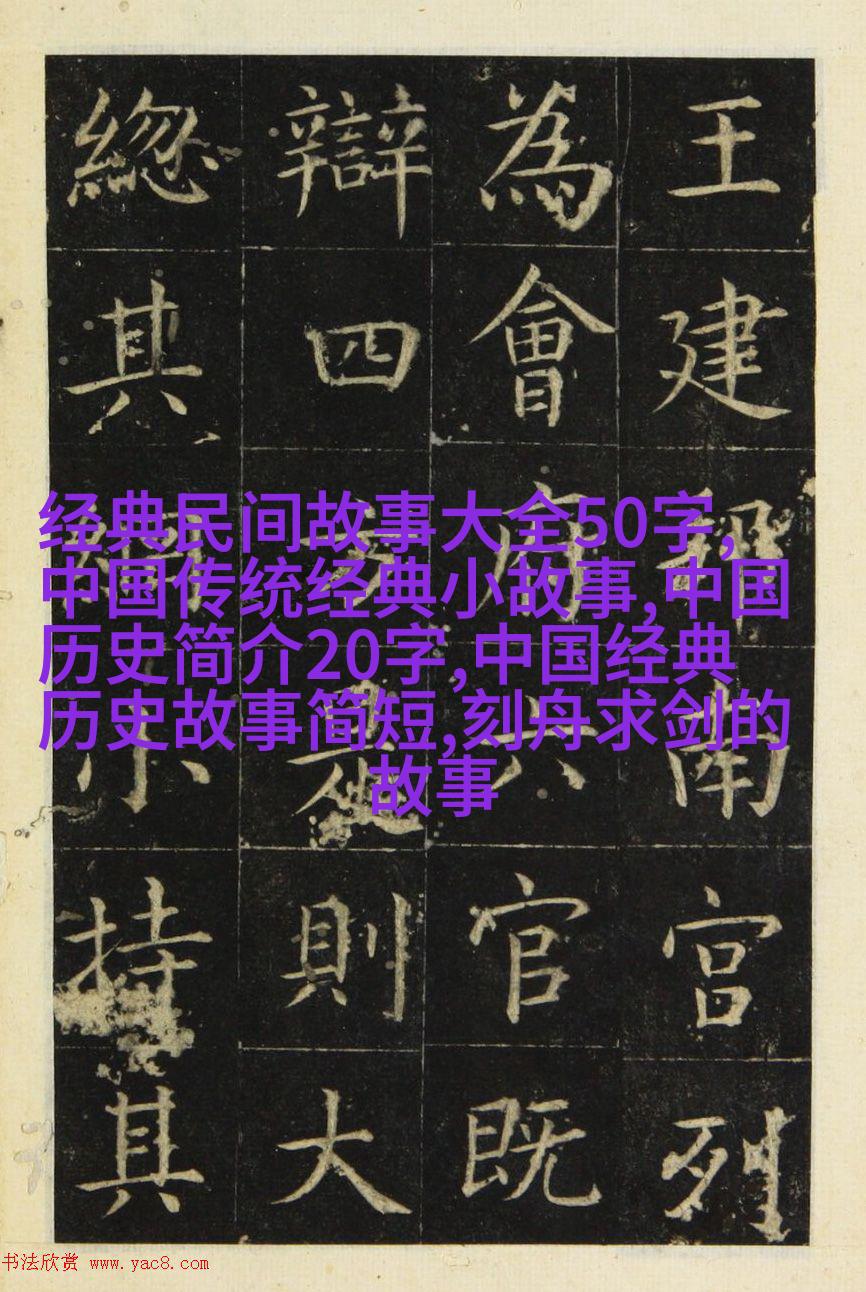 王建南宮列
為會府六官既
辯四方是則大
總其綱小持其
经典民间故事大全50字,
中国传统经典小故事,中国
历史简介20字,中国经典
历史故事简短,刻舟求剑的
故事
书法欣赏 www.yac8.com